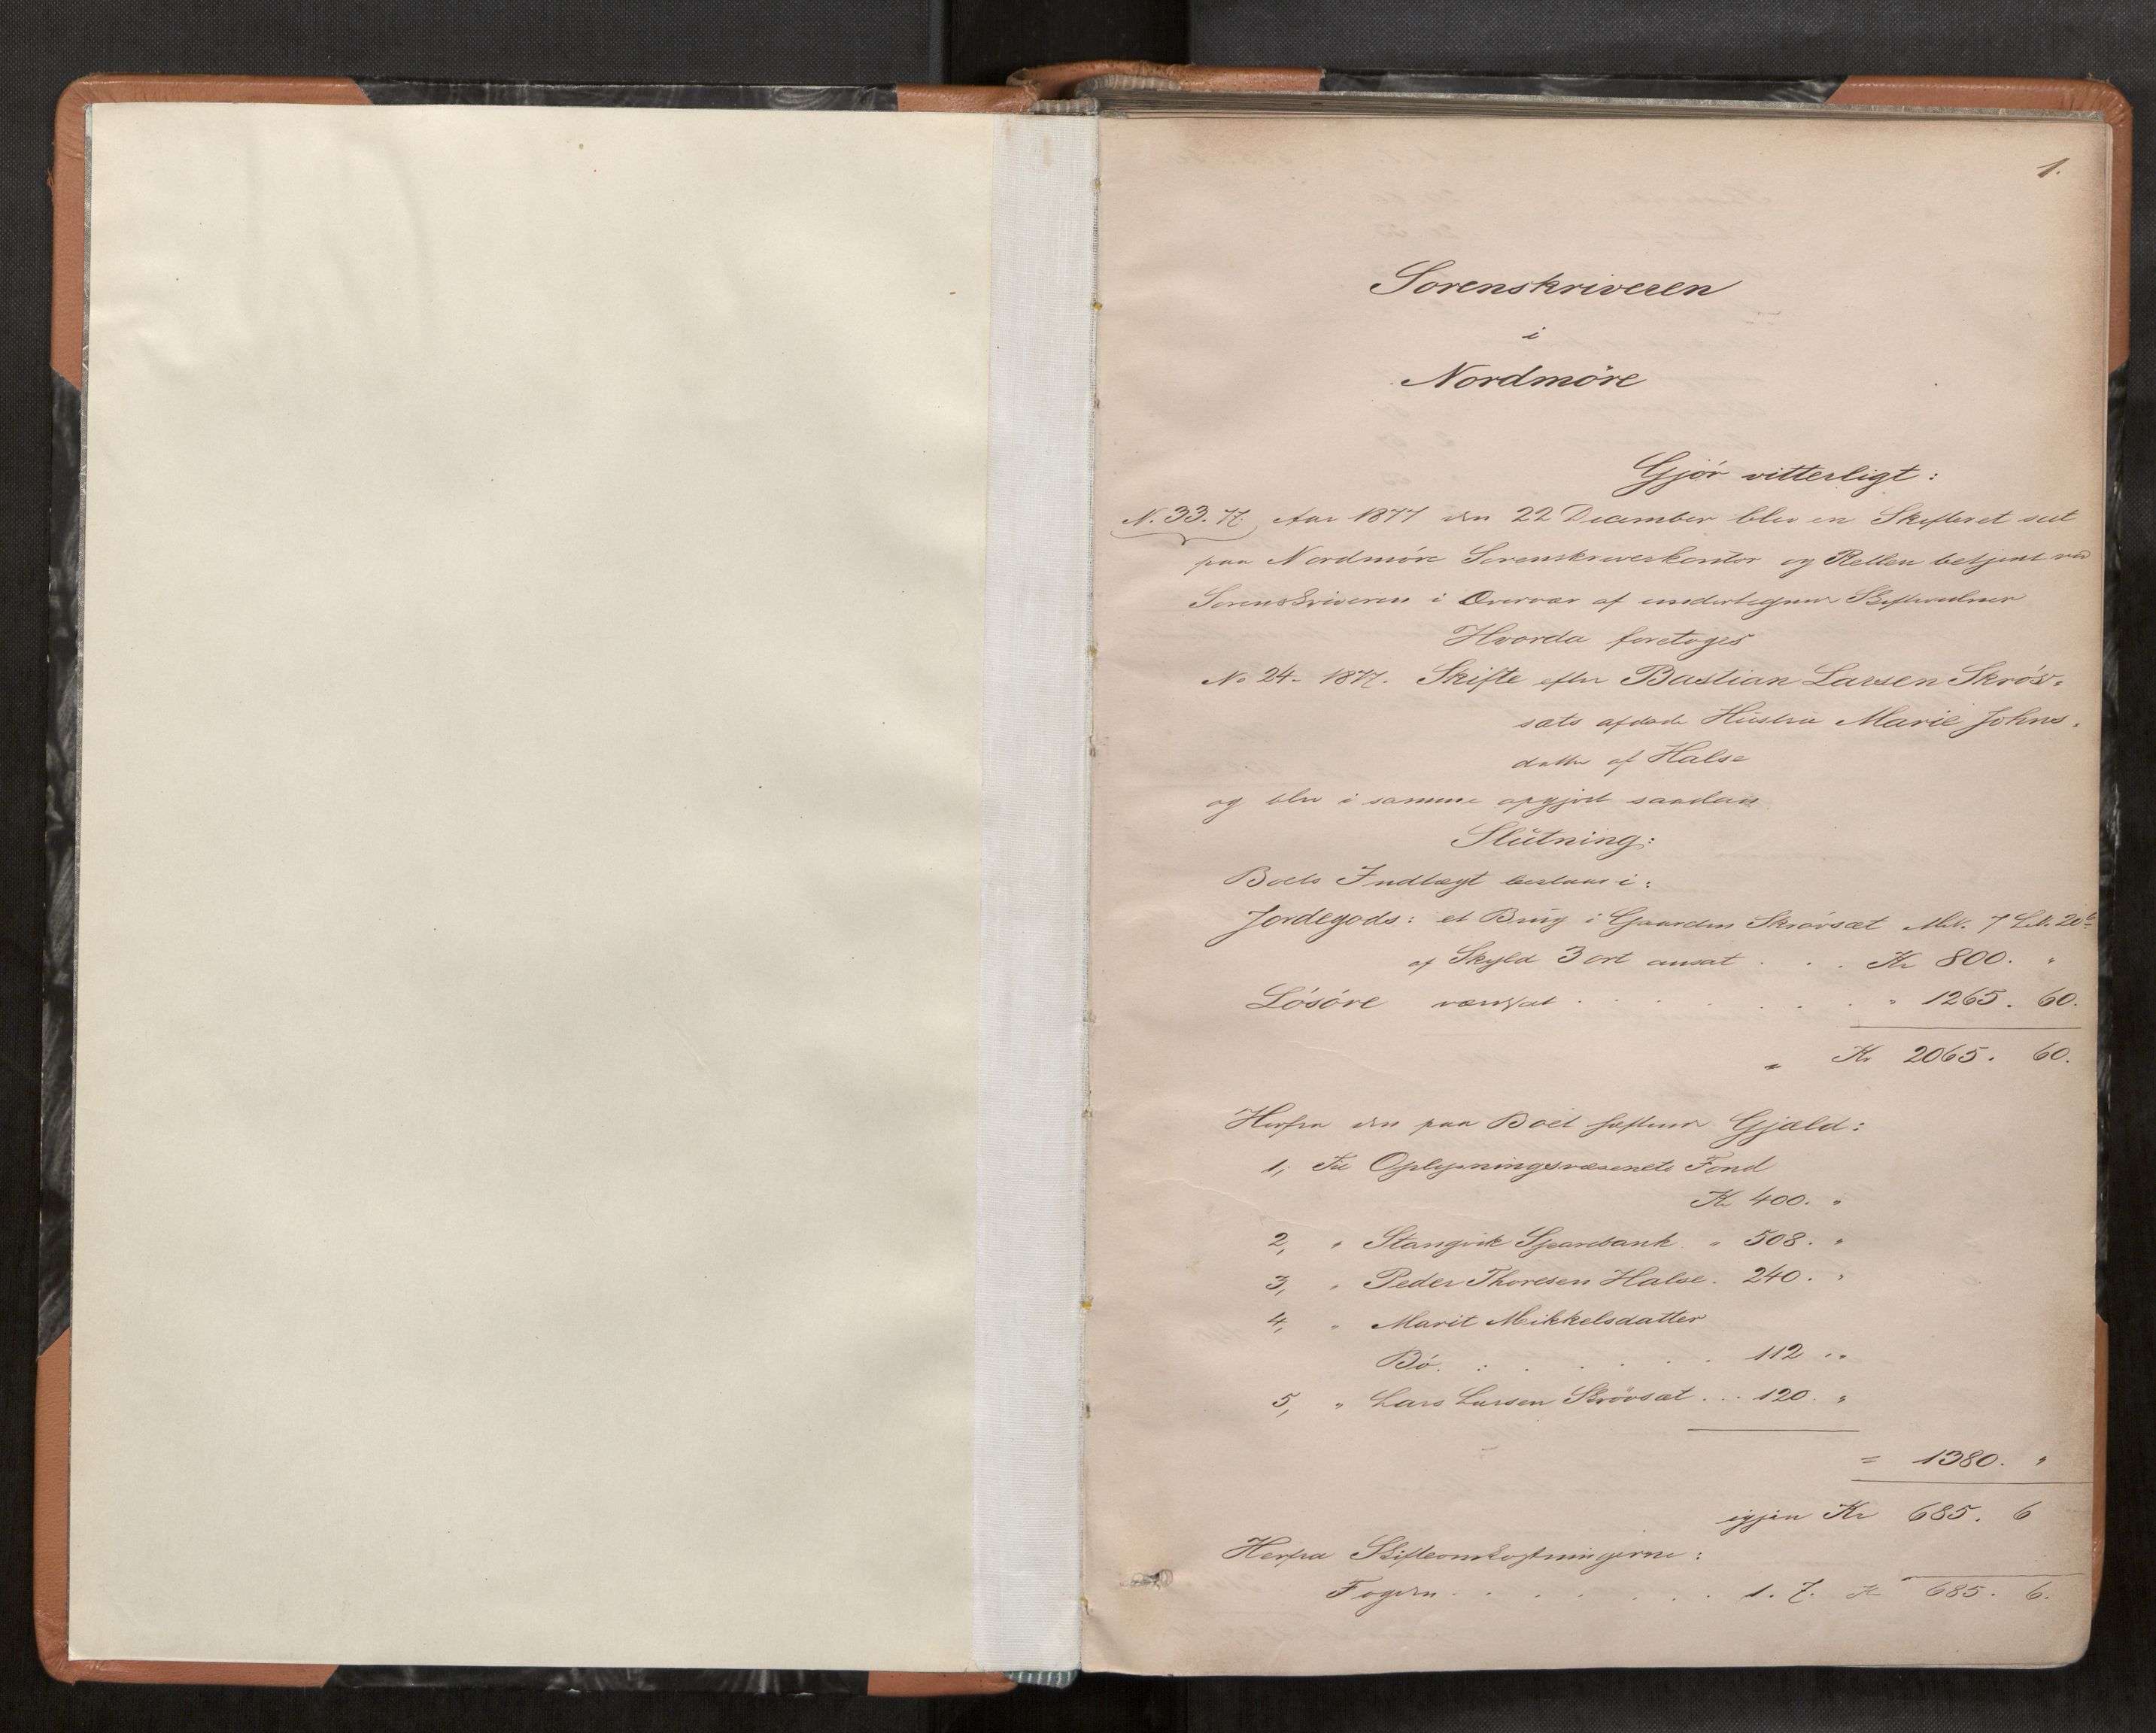 1.
Sorenskriveren
i
Nordmöre
Gjör vitterligt:
N. 33. 77. Aar 1877 den 22 December blev en Skifteret sat
paa Nordmöre Sorenskriverkontor og Retten betjent ved
Sorenskriveren i Overvær af undertegnede Skiftevidner
Hvorda foretoges
No 24 - 1877. Skifte efter Bastian Larsen Skröv-
sæts afdøde Hustru Marie Johns-
datter af Halse
og blev i samme opgjort saadan
Slutning:
Boets Indtægt bestaar i:
Jordegods: et Brug i Gaarden Skrövsæt Mt. 7 L.
af Skyld 3 ort ansat . . . Kr 800. "
Lösöre vurdsat . . . . . . " 1265. 60.
" Kr 2065. 60.
Herfra den paa Boet heftende Gjæld:
1, Til Oplysningsvæsenets Fond
Kr 400. "
2, " Stangvik Sparebank " 508. "
3, " Peder Thoresen Halse. 240. "
4, " Marit Mikkelsdatter
Bö. . . . . . 112 . "
5, " Lars Larsen Skrövsæt . . . 120. "
= 1380. "
igjen Kr 685. 6
Herfra Skifteomkostningerne:
Fogden . . . . . . 1. 7. Kr 685. 6.